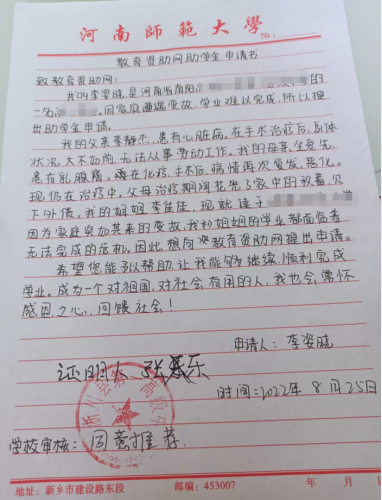 河南師範大學 No:
教育资助网助学金申请书
致教育资助网:
我叫李姿晓,是河南省南阳 的
一名 。因家庭遭遇变故,学业难以完成,所以提
出助学金申请。
我的父亲李静杰,患有心脏病,在手术治疗后,身体
状况大不如前,无法从事劳动工作。我的母亲全
患有乳腺癌。曾在化疗、手术后,病情再次复发、恶化。
现仍在治疗中,父母治疗期间花光了家中的积蓄,欠
下外债。我的姐姐李佳佳,现就读于
因为家庭突如其来的变故,我和姐姐的学业都面临着
无法完成的危机,因此想向教育资助网提出申请。
希望您能予以帮助,让我能够继续、顺利完成
学业。成为一个对祖国,对社会有用的人,我也会常怀
感恩之心,回馈社会!
申请人:李姿晓
证明人:张 乐
时间:2022年8月25日
县第 高级
学校审核:同意推荐.
年 月 日
地址:新乡市建设路东段 邮编:453007